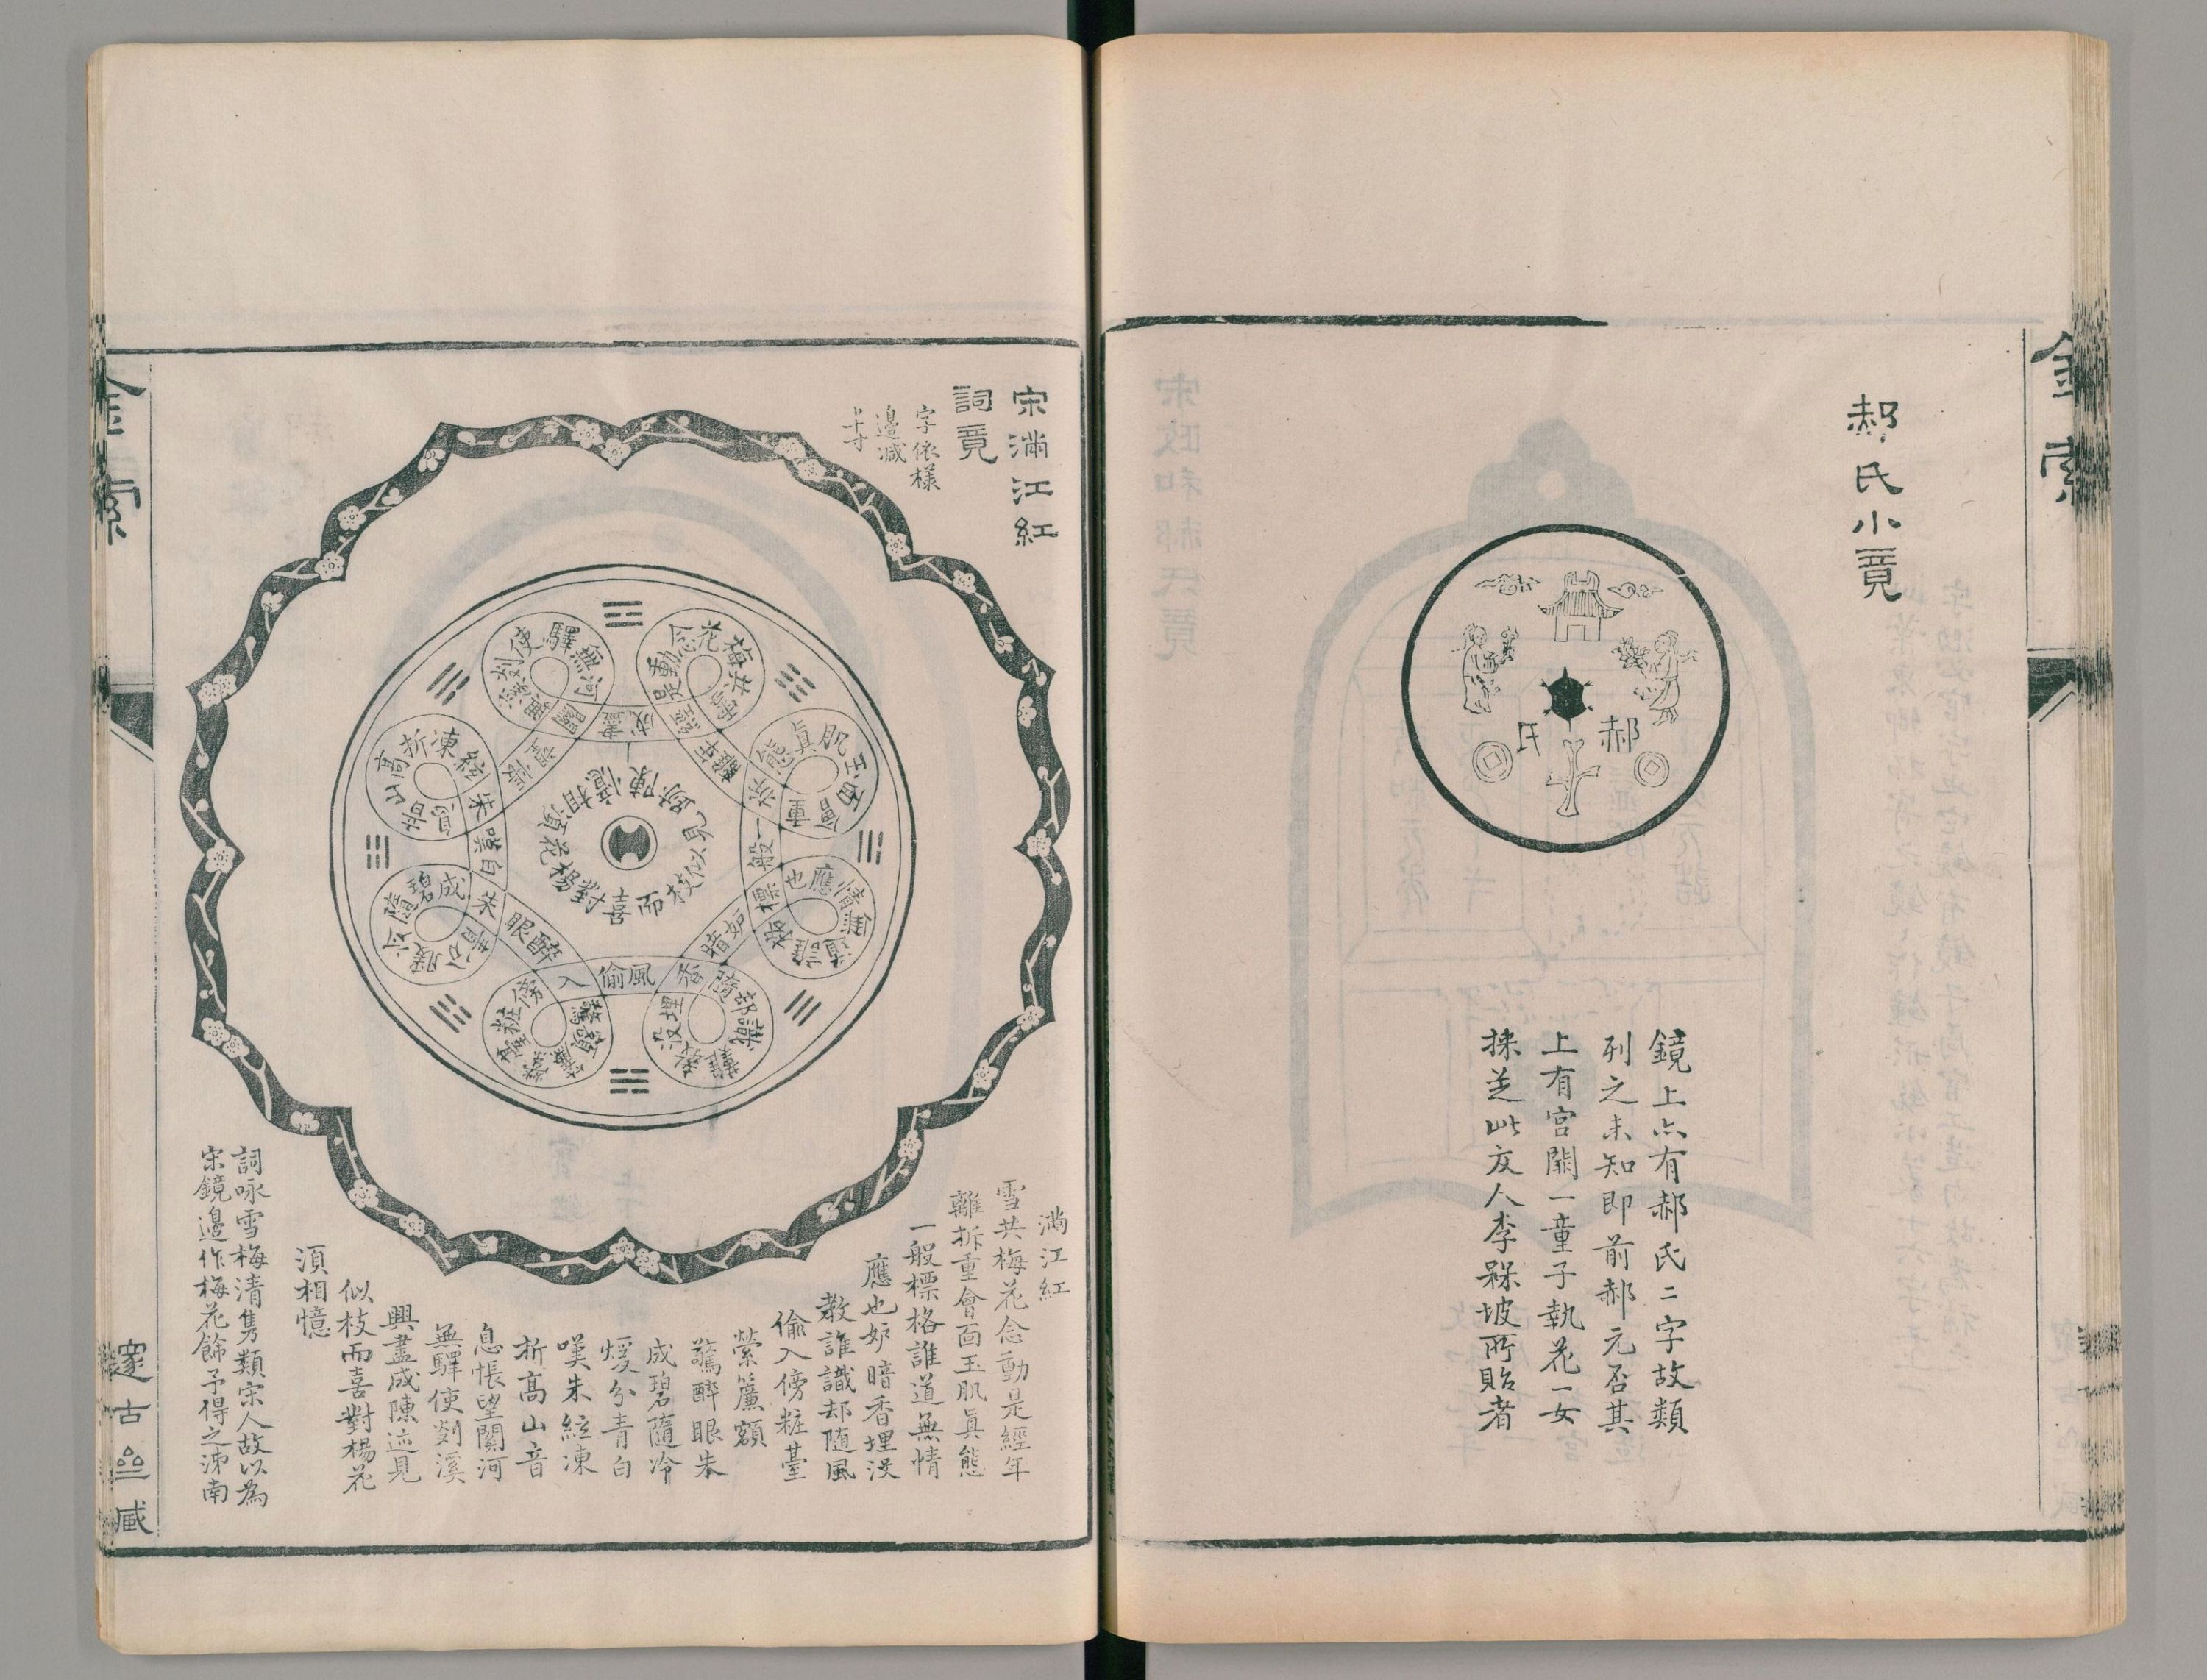 金索
郝氏小竟
郝氏
鏡上亦有郝氏二字故類
列之未知即前郝元否其
上有宮闕一童子執花一女
採芝此友人李槑坡所貽者
宋滿江紅
詞竟
字依樣
邊減
滿江紅
雪共梅花念動是經年
離拆重會面玉肌真態
一般標格誰道無情
應也妒暗香埋没
教誰識却随風
偷入傍粧臺
縈簾額
驚醉眼朱
成碧隨冷
煖分青白
嘆朱絃凍
折高山音
息悵望關河
無驛使剡溪
興盡成陳迹見
似枝而喜對楊花
須相憶
詞咏雪梅清雋類宋人故以為
宋鏡邊作梅花餙予得之沛南
金索
邃古
臧